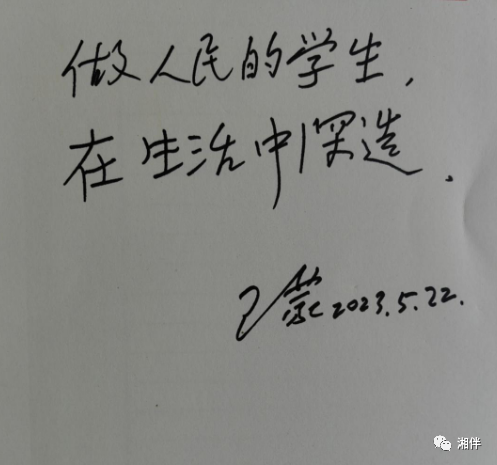 做人民的学生,
在生活中深造.
王蒙 2023.5.22.
湘伴